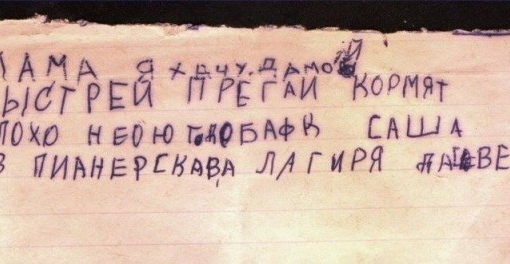 МАМА Я ХАЧУ ДАМОЙ
ЫСТРЕЙ ПРЕГАЙ КОРМЯТ
ЛОХО НЕОЮТ ДОБАФК САША
З ПИАНЕРСКАВА ЛАГИРЯ